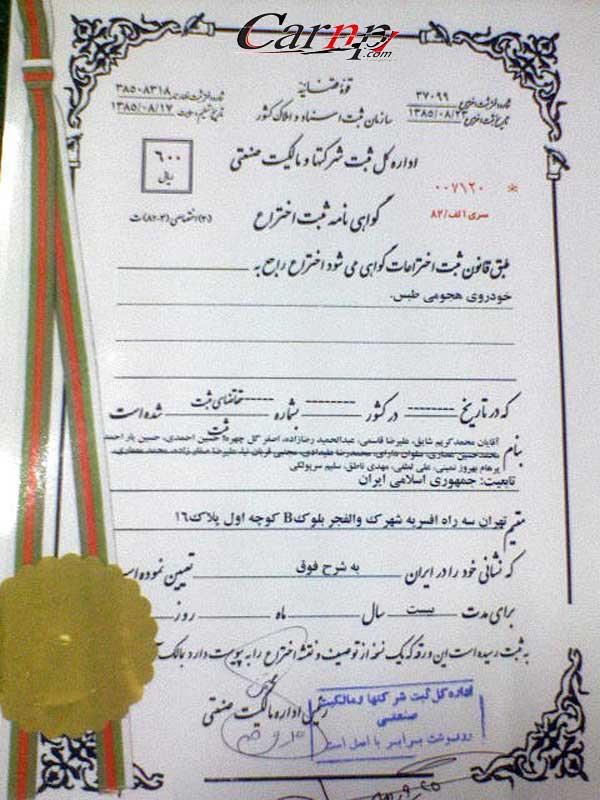 Carnp.com
قوه قضائیه
شماره دفتر ثبت اختراع ۳۷۰۹۹
تاریخ ثبت اختراع ۱۳۸۵/۰۸/۲۳
۳۸۵۰۸۳۱۸
۱۳۸۵/۰۸/۱۷
سازمان ثبت اسناد و املاک کشور
اداره کل ثبت شرکتها و مالکیت صنعتی
۶۰۰
ریال
۰۰۷۱۲۰ *
سری ۱ الف/۸۲
گواهی نامه ثبت اختراع
طبق قانون ثبت اختراعات گواهی می شود اختراع راجع به
خودروی هجومی طبس.
که در تاریخ -------- در کشور -------- بشماره ---- تقاضای ثبت ---- شده است
ثبت
بنام آقایان محمد کریم شایق، علیرضا قاسمی، عبدالحمید رضازاده، اصغر گل چهره، حسین احمدی، حسین یار احمد
محمدحسین عصاری، سلوان دارای، محمدرضا علیدادی، مجتبی قربان نیا، علیرضا صفارزاده، محمد عصاری،
پرهام بهروز نمینی، علی لطفی، مهدی ناطق، سلیم سرپولکی
تابعیت: جمهوری اسلامی ایران
مقیم تهران سه راه افسریه شهرک والفجر بلوک B کوچه اول پلاک ۱۶
که نشانی خود را در ایران به شرح فوق تعیین نموده است
برای مدت بیست سال ماه روز
به ثبت رسیده است این ورقه که یک نسخه از توصیف و نقشه اختراع را به پیوست دارد بمالک
رئیس اداره مالکیت صنعتی
اداره کل ثبت شرکتها و مالکیت
صنعتی
رونوشت برابر با اصل است